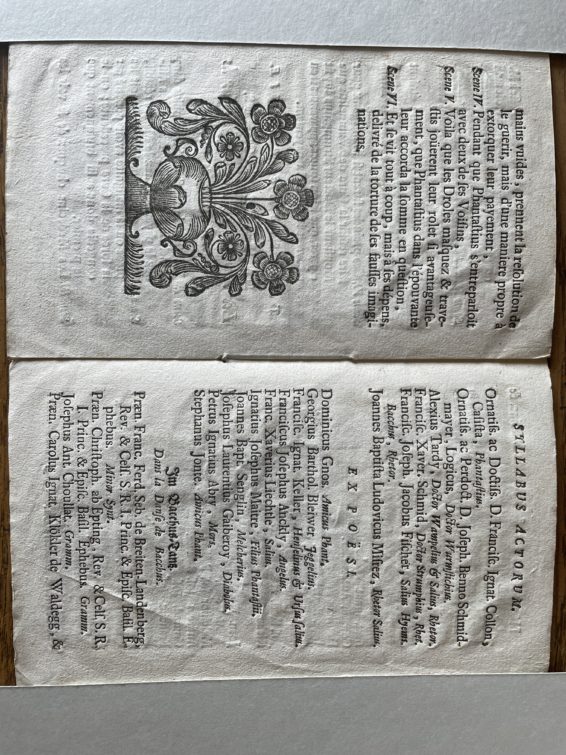 mains vuides, prennent la resolution de
le guerir, mais d'une maniere propre à
extorquer leur payement,
Scene IV. Pendant que Phantaſtius s'entreparloit
avec deux de ſes Voiſins,
Scene V. Voila que les Droles maſquez & trave-
ſtis jouërent leur rolet ſi avantageuſe-
ment, que Phantaſtius dans l'épouvante
leur accorda la ſomme en queſtion,
Scene VI. Et ſe vit tout à coup, mais à ſes dépens,
délivré de la torture de ſes fauſſes imagi-
nations.
SYLLABUS ACTORUM.
Ornatiſ. ac Doctiſs. D. Franciſc. Ignat. Collon,
Caſiſta, Phantaſtius.
Ornatiſ. ac Perdoct. D. Joſeph. Benno Schmid-
mayer, Logicus, Doctor Wurmſichius.
Alexius Tardy, Doctor Wempelius & Salius, Rhetor.
Franciſc. Xaver. Schmid, Doctor Strumphius, Rhet.
Franciſc. Joſeph. Jacobus Friſchet, Salius Hyems.
Bacchus, Rhetor.
Joannes Baptiſta Ludovicus Miſtez, Rhetor Salius.
EX POËSI.
Dominicus Gnos, Amicus Phant.
Georgius Barthol. Bleiwer, Jggelius.
Franciſc. Ignat. Keller, Henſelinus & Urſus ſalius.
Franciſcus Joſephus Anckly, Angelus.
Franc. Xaverius Liechtle, Salius.
Ignatius Joſephus Maître, Filius Phantaſtii.
Joannes Bapt. Senglin, Melcherius.
Joſephus Laurentius Gaiberoy, Diabolus.
Petrus Ignatius Abry, Mors.
Stephanus Joize, Amicus Phant.
Im Bacchus-Tantz
Dans la Danſe de Bacchus.
Præn. Franc. Ferd. Seb. de Breiten-Landenberg,
Rev. & Celſ. S. R. I. Princ. & Epiſc. Baſil. E-
phebus. Minor Synt.
Præn. Chriſtoph. ab Epting, Rev. & Celſ. S. R.
I. Princ. & Epiſc. Baſil. Ephebus. Gramm.
Joſephus Ant. Choullat, Gramm.
Præn. Carolus Ignat. Klöckler de Waldegg, &